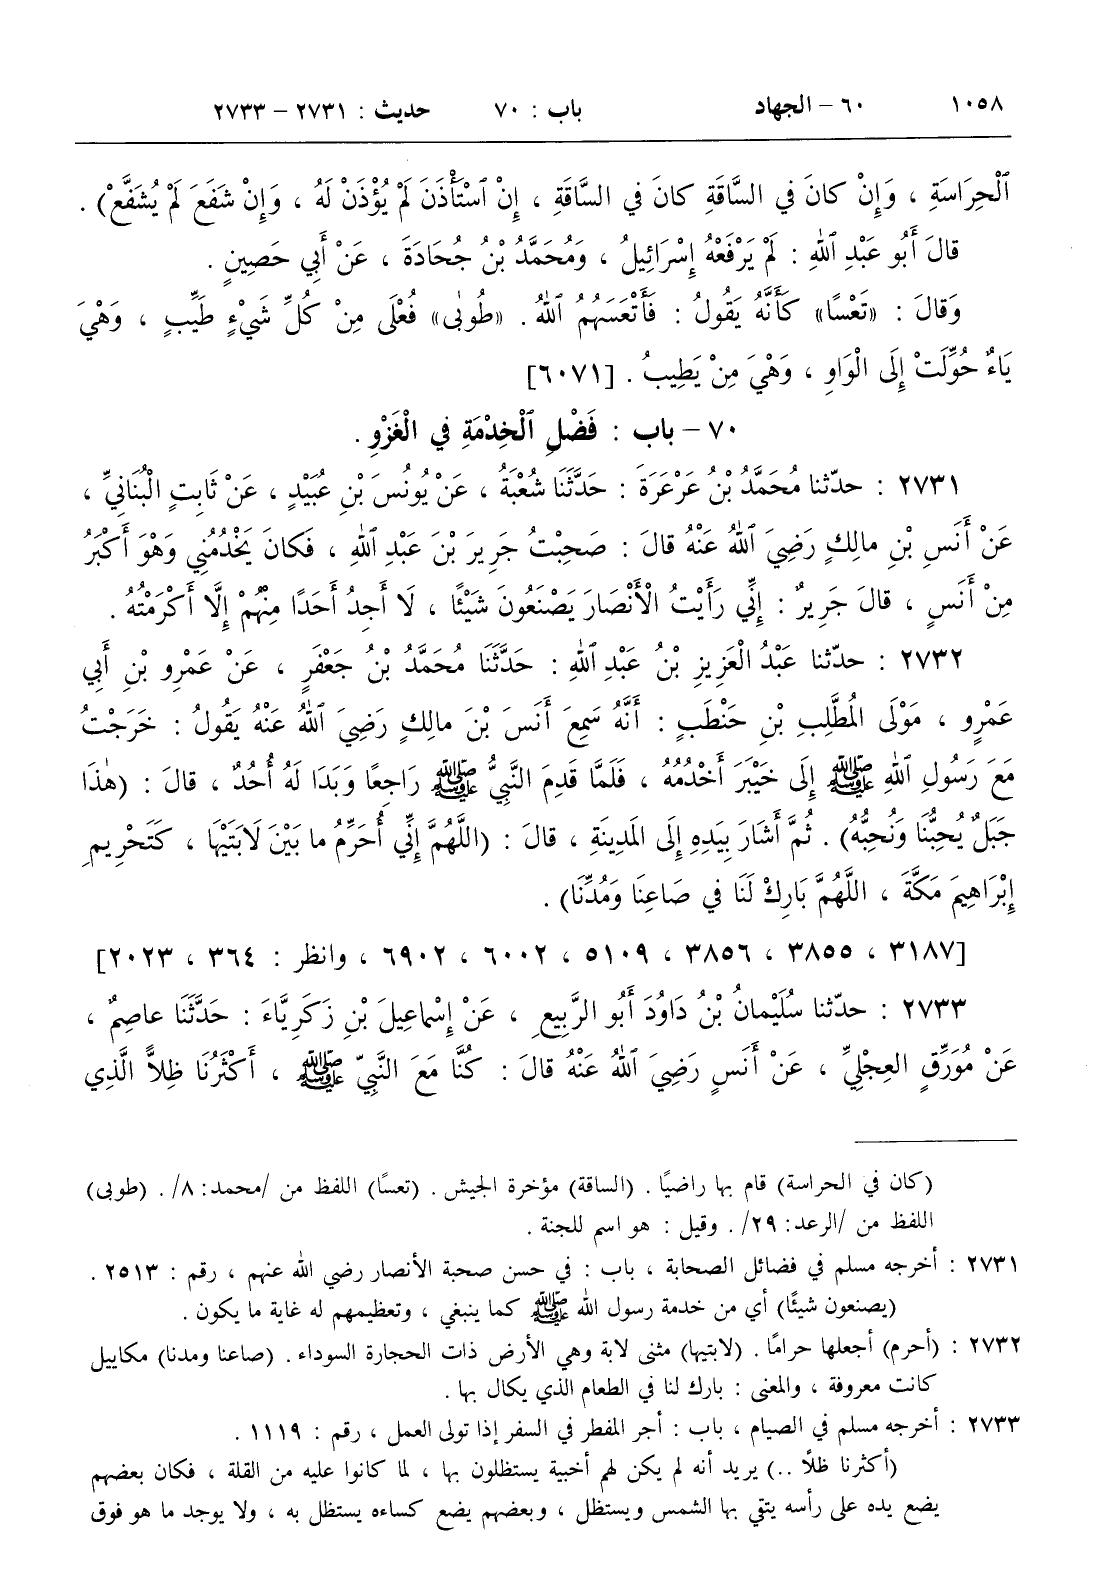 ١٠٥٨ ٦٠ - الجهاد باب : ٧٠ حديث : ٢٧٣١ - ٢٧٣٣
ٱلْحِرَاسَةِ ، وَإِنْ كانَ في السَّاقَةِ كانَ في السَّاقَةِ ، إِنْ ٱسْتَأْذَنَ لَمْ يُؤْذَنْ لَهُ ، وَإِنْ شَفَعَ لَمْ يُشَفَّعْ) .
قالَ أَبُو عَبْدِ ٱللهِ : لَمْ يَرْفَعْهُ إِسْرَائِيلُ ، وَمُحَمَّدُ بْنُ جُحَادَةَ ، عَنْ أَبِي حَصِينٍ .
وَقالَ : «تَعْسًا» كَأَنَّهُ يَقُولُ : فَأَتْعَسَهُمُ ٱللهُ . «طُوبٰى» فُعْلَى مِنْ كُلِّ شَيْءٍ طَيِّبٍ ، وَهْيَ
يَاءٌ حُوِّلَتْ إِلَى الْوَاوِ ، وَهْيَ مِنْ يَطِيبُ . [٦٠٧١]
٧٠ - باب : فَضْلِ ٱلْخِدْمَةِ فِي الْغَزْوِ .
٢٧٣١ : حدّثنا مُحَمَّدُ بْنُ عَرْعَرَةَ : حَدَّثَنَا شُعْبَةُ ، عَنْ يُونُسَ بْنِ عُبَيْدٍ ، عَنْ ثَابِتٍ الْبُنَانِيِّ ،
عَنْ أَنَسِ بْنِ مالِكٍ رَضِيَ ٱللهُ عَنْهُ قالَ : صَحِبْتُ جَرِيرَ بْنَ عَبْدِ ٱللهِ ، فَكانَ يَخْدُمُنِي وَهْوَ أَكْبَرُ
مِنْ أَنَسٍ ، قالَ جَرِيرٌ : إِنِّي رَأَيْتُ الْأَنْصَارَ يَصْنَعُونَ شَيْئًا ، لَا أَجِدُ أَحَدًا مِنْهُمْ إِلَّا أَكْرَمْتُهُ .
٢٧٣٢ : حدّثنا عَبْدُ الْعَزِيزِ بْنُ عَبْدِ ٱللهِ : حَدَّثَنَا مُحَمَّدُ بْنُ جَعْفَرٍ ، عَنْ عَمْرِو بْنِ أَبِي
عَمْرٍو ، مَوْلَى المُطَّلِبِ بْنِ حَنْطَبٍ : أَنَّهُ سَمِعَ أَنَسَ بْنَ مالِكٍ رَضِيَ ٱللهُ عَنْهُ يَقُولُ : خَرَجْتُ
مَعَ رَسُولِ ٱللهِ ﷺ إِلَى خَيْبَرَ أَخْدُمُهُ ، فَلَمَّا قَدِمَ النَّبِيُّ ﷺ رَاجِعًا وَبَدَا لَهُ أُحُدٌ ، قالَ : (هٰذَا
جَبَلٌ يُحِبُّنَا وَنُحِبُّهُ) . ثُمَّ أَشَارَ بِيَدِهِ إِلَى المَدِينَةِ ، قالَ : (اللَّهُمَّ إِنِّي أُحَرِّمُ ما بَيْنَ لَابَتَيْهَا ، كَتَحْرِيمِ
إِبْرَاهِيمَ مَكَّةَ ، اللَّهُمَّ بَارِكْ لَنَا في صَاعِنَا وَمُدِّنَا) .
[٣١٨٧ ، ٣٨٥٥ ، ٣٨٥٦ ، ٥١٠٩ ، ٦٠٠٢ ، ٦٩٠٢ ، وانظر : ٣٦٤ ، ٢٠٢٣]
٢٧٣٣ : حدّثنا سُلَيْمانُ بْنُ دَاوُدَ أَبُو الرَّبِيعِ ، عَنْ إِسْماعِيلَ بْنِ زَكَرِيَّاءَ : حَدَّثَنَا عاصِمٌ ،
عَنْ مُوَرِّقٍ العِجْلِيِّ ، عَنْ أَنَسٍ رَضِيَ ٱللهُ عَنْهُ قالَ : كُنَّا مَعَ النَّبِيِّ ﷺ ، أَكْثَرُنَا ظِلاًّ الَّذِي
(كان في الحراسة) قام بها راضيًا . (الساقة) مؤخرة الجيش . (تعسًا) اللفظ من /محمد: ٨/ . (طوبى)
اللفظ من /الرعد: ٢٩/ . وقيل : هو اسم للجنة .
٢٧٣١ : أخرجه مسلم في فضائل الصحابة ، باب : في حسن صحبة الأنصار رضي الله عنهم ، رقم : ٢٥١٣ .
(يصنعون شيئًا) أي من خدمة رسول الله ﷺ كما ينبغي ، وتعظيمهم له غاية ما يكون .
٢٧٣٢ : (أحرم) أجعلها حرامًا . (لابتيها) مثنى لابة وهي الأرض ذات الحجارة السوداء . (صاعنا ومدنا) مكاييل
كانت معروفة ، والمعنى : بارك لنا في الطعام الذي يكال بها .
٢٧٣٣ : أخرجه مسلم في الصيام ، باب : أجر المفطر في السفر إذا تولى العمل ، رقم : ١١١٩ .
(أكثرنا ظلاً ..) يريد أنه لم يكن لهم أخبية يستظلون بها ، لما كانوا عليه من القلة ، فكان بعضهم
يضع يده على رأسه يتقي بها الشمس ويستظل ، وبعضهم يضع كساءه يستظل به ، ولا يوجد ما هو فوق